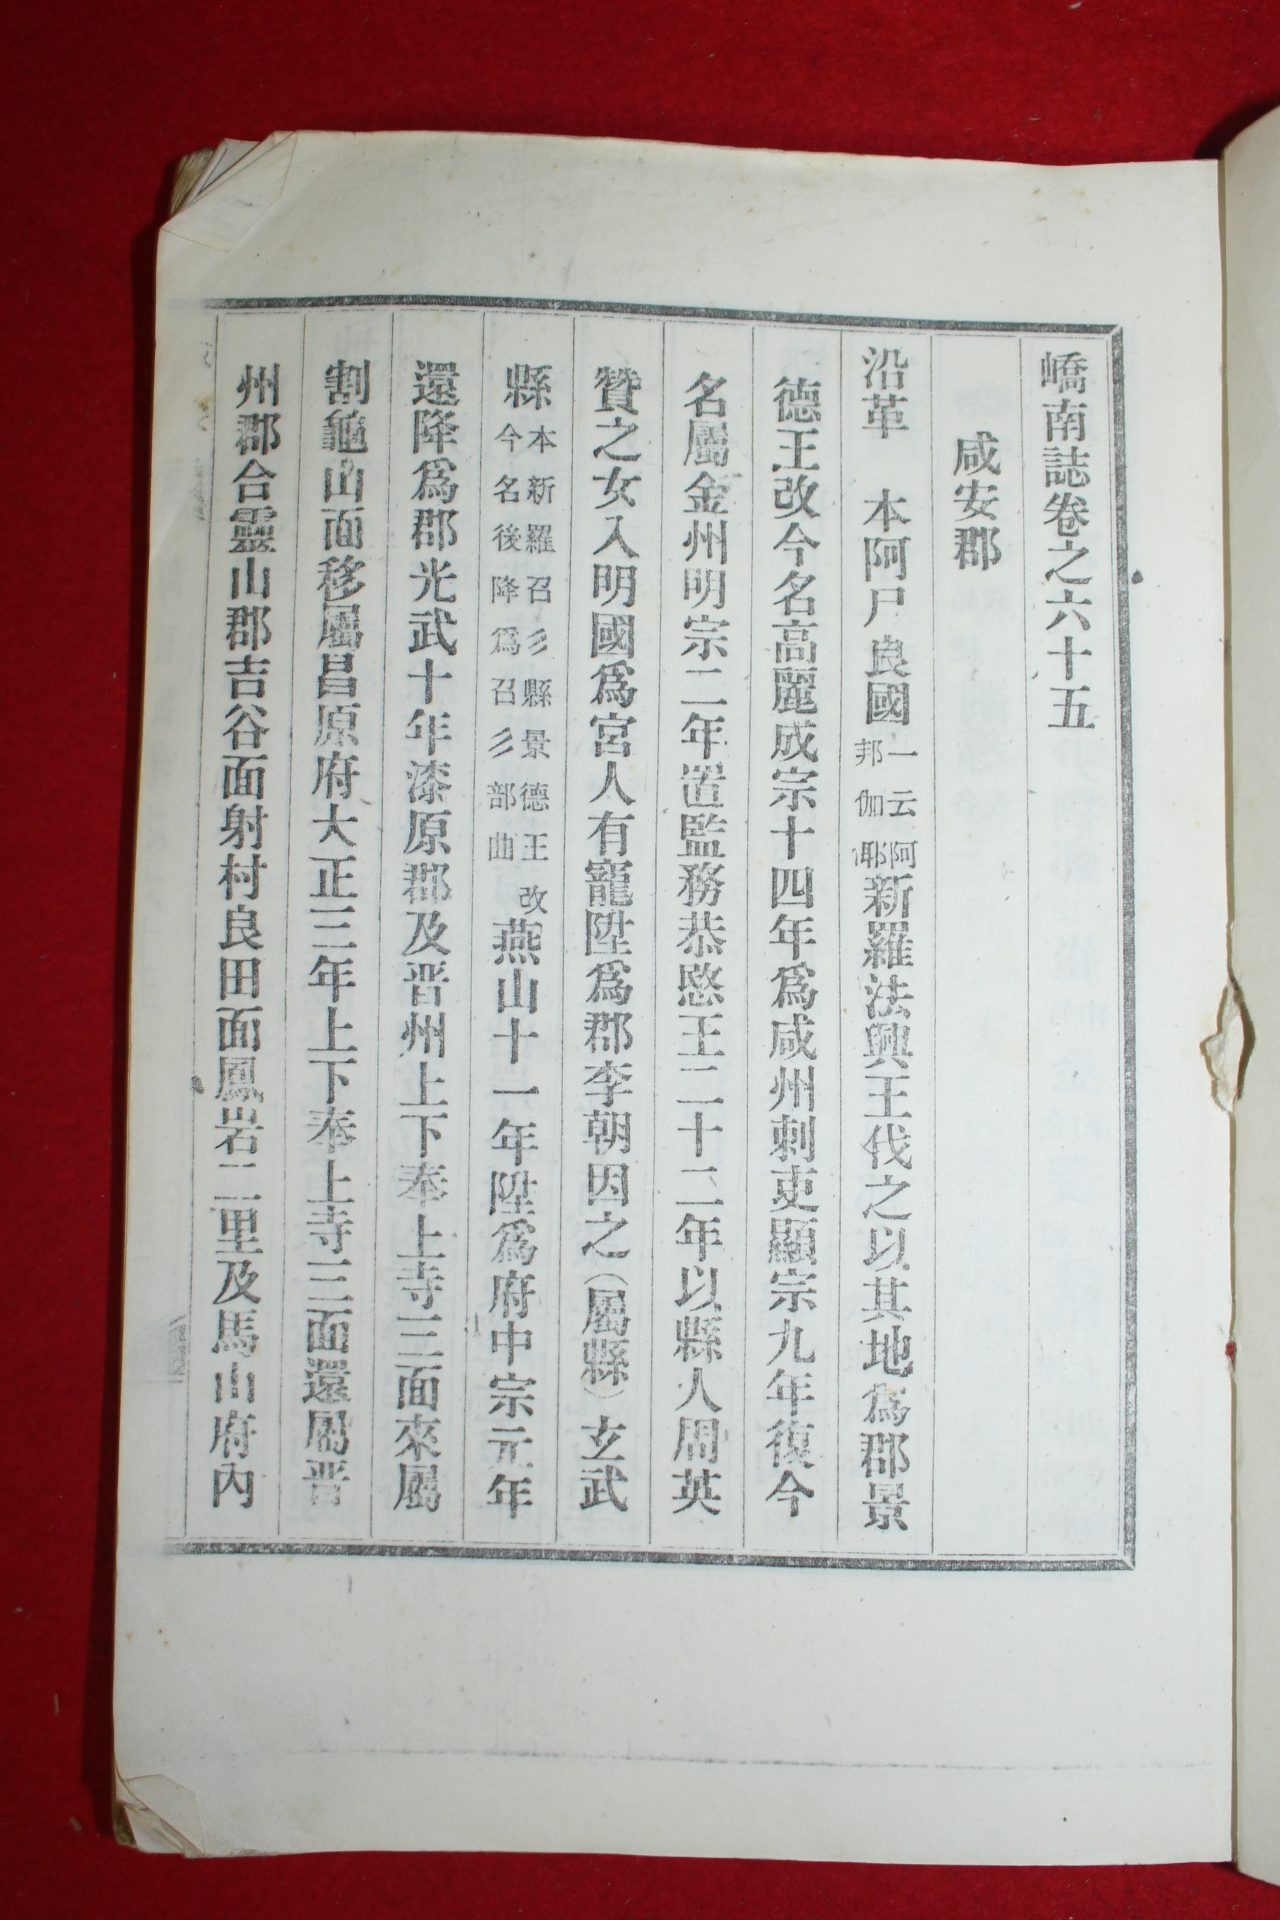 嶠南誌卷之六十五
咸安郡
沿革 本阿尸良國一云阿邦伽耶新羅法興王伐之以其地爲郡景
德王改今名高麗成宗十四年爲咸州刺吏顯宗九年復今
名屬金州明宗二年置監務恭愍王二十二年以縣人周英
贊之女入明國爲宮人有寵陞爲郡李朝因之(屬縣)玄武
縣本新羅召彡縣景德王改今名後降爲召彡部曲燕山十一年陞爲府中宗元年
還降爲郡光武十年漆原郡及晋州上下奉上寺三面來屬
割龜山面移屬昌原府大正三年上下奉上寺三面還屬晋
州郡合靈山郡吉谷面射村良田面鳳岩二里及馬山府內